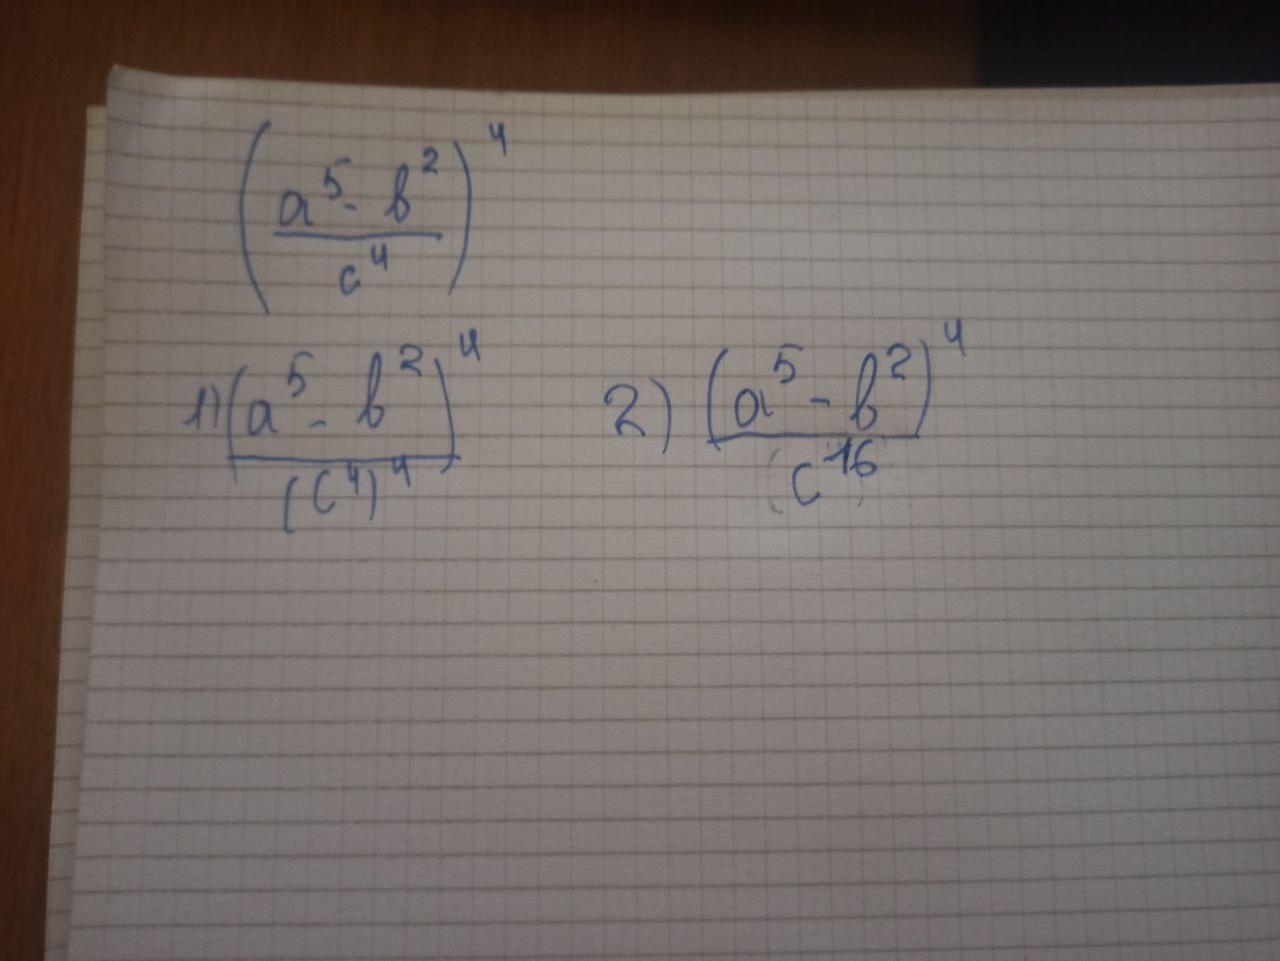 (a⁵ - b² / c⁴)⁴
1) (a⁵ - b²)⁴ / (c⁴)⁴
2) (a⁵ - b²)⁴ / c¹⁶